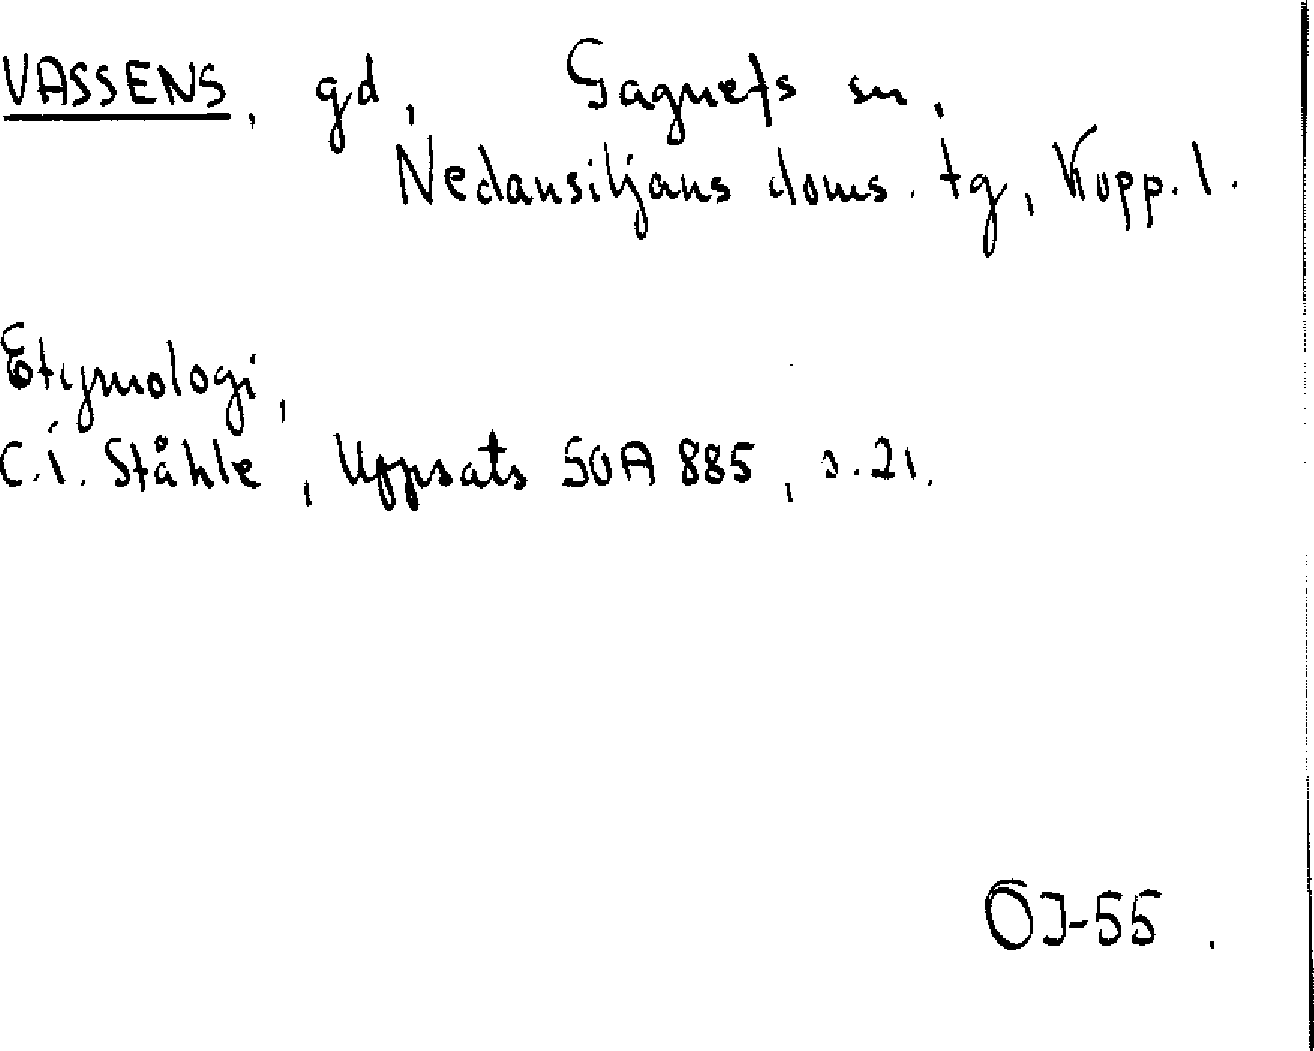 VASSENS, gd, Gagnefs sn,
Nedansiljans doms. tg, Kopp. l.
Etymologi,
C.I. Ståhle, Uppsats SOA 885, s. 21.
OJ-55.